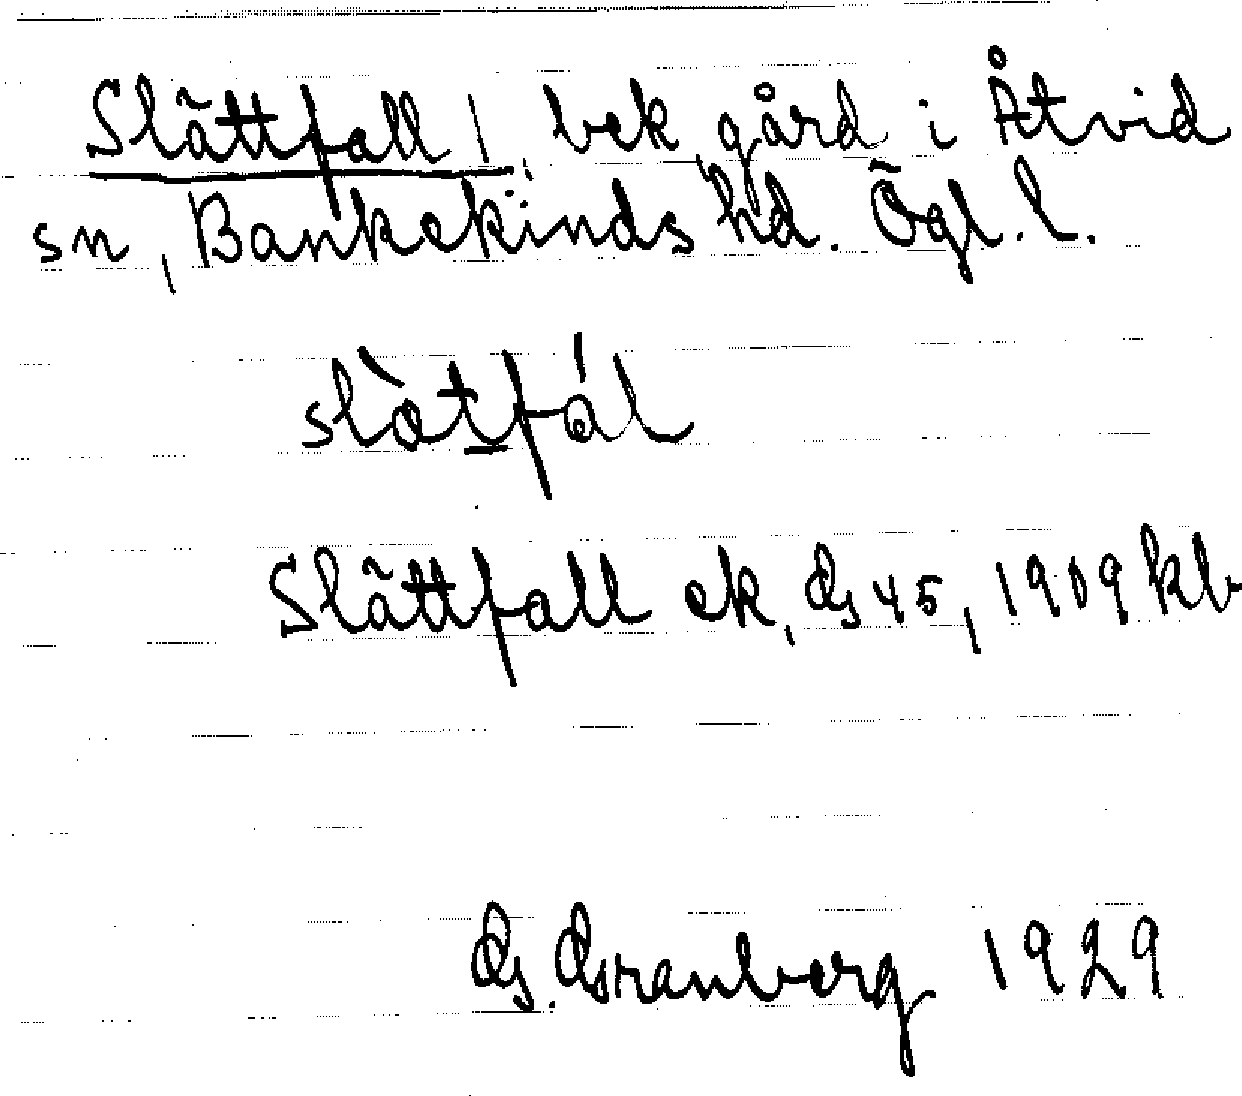 Slättfall, bek. gård i Åtvid
sn, Bankekinds hd. Ögl. l.
slàtfál
Slättfall ek, Gs 45, 1909 kb
G. Granberg 1929